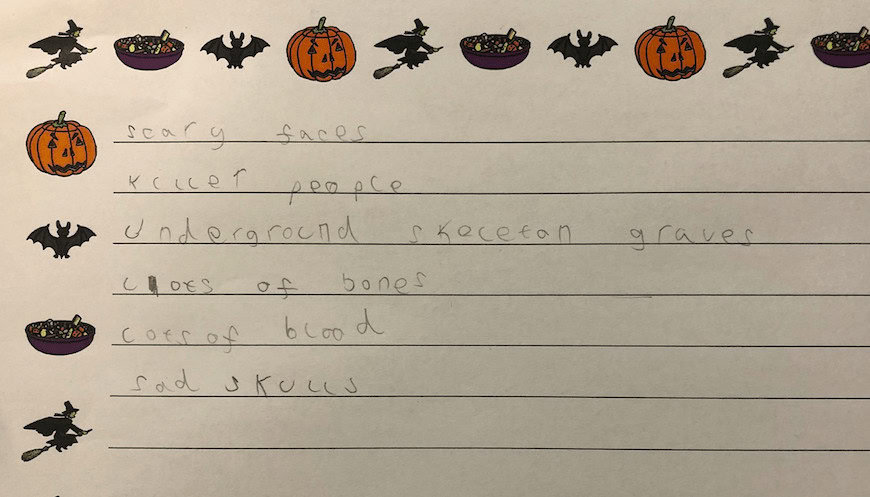 scary faces
killer people
underground skeletan graves
lots of bones
lots of blood
sad skulls